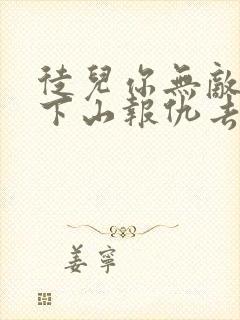 徒兒你無敵
下山報仇去
姜寧